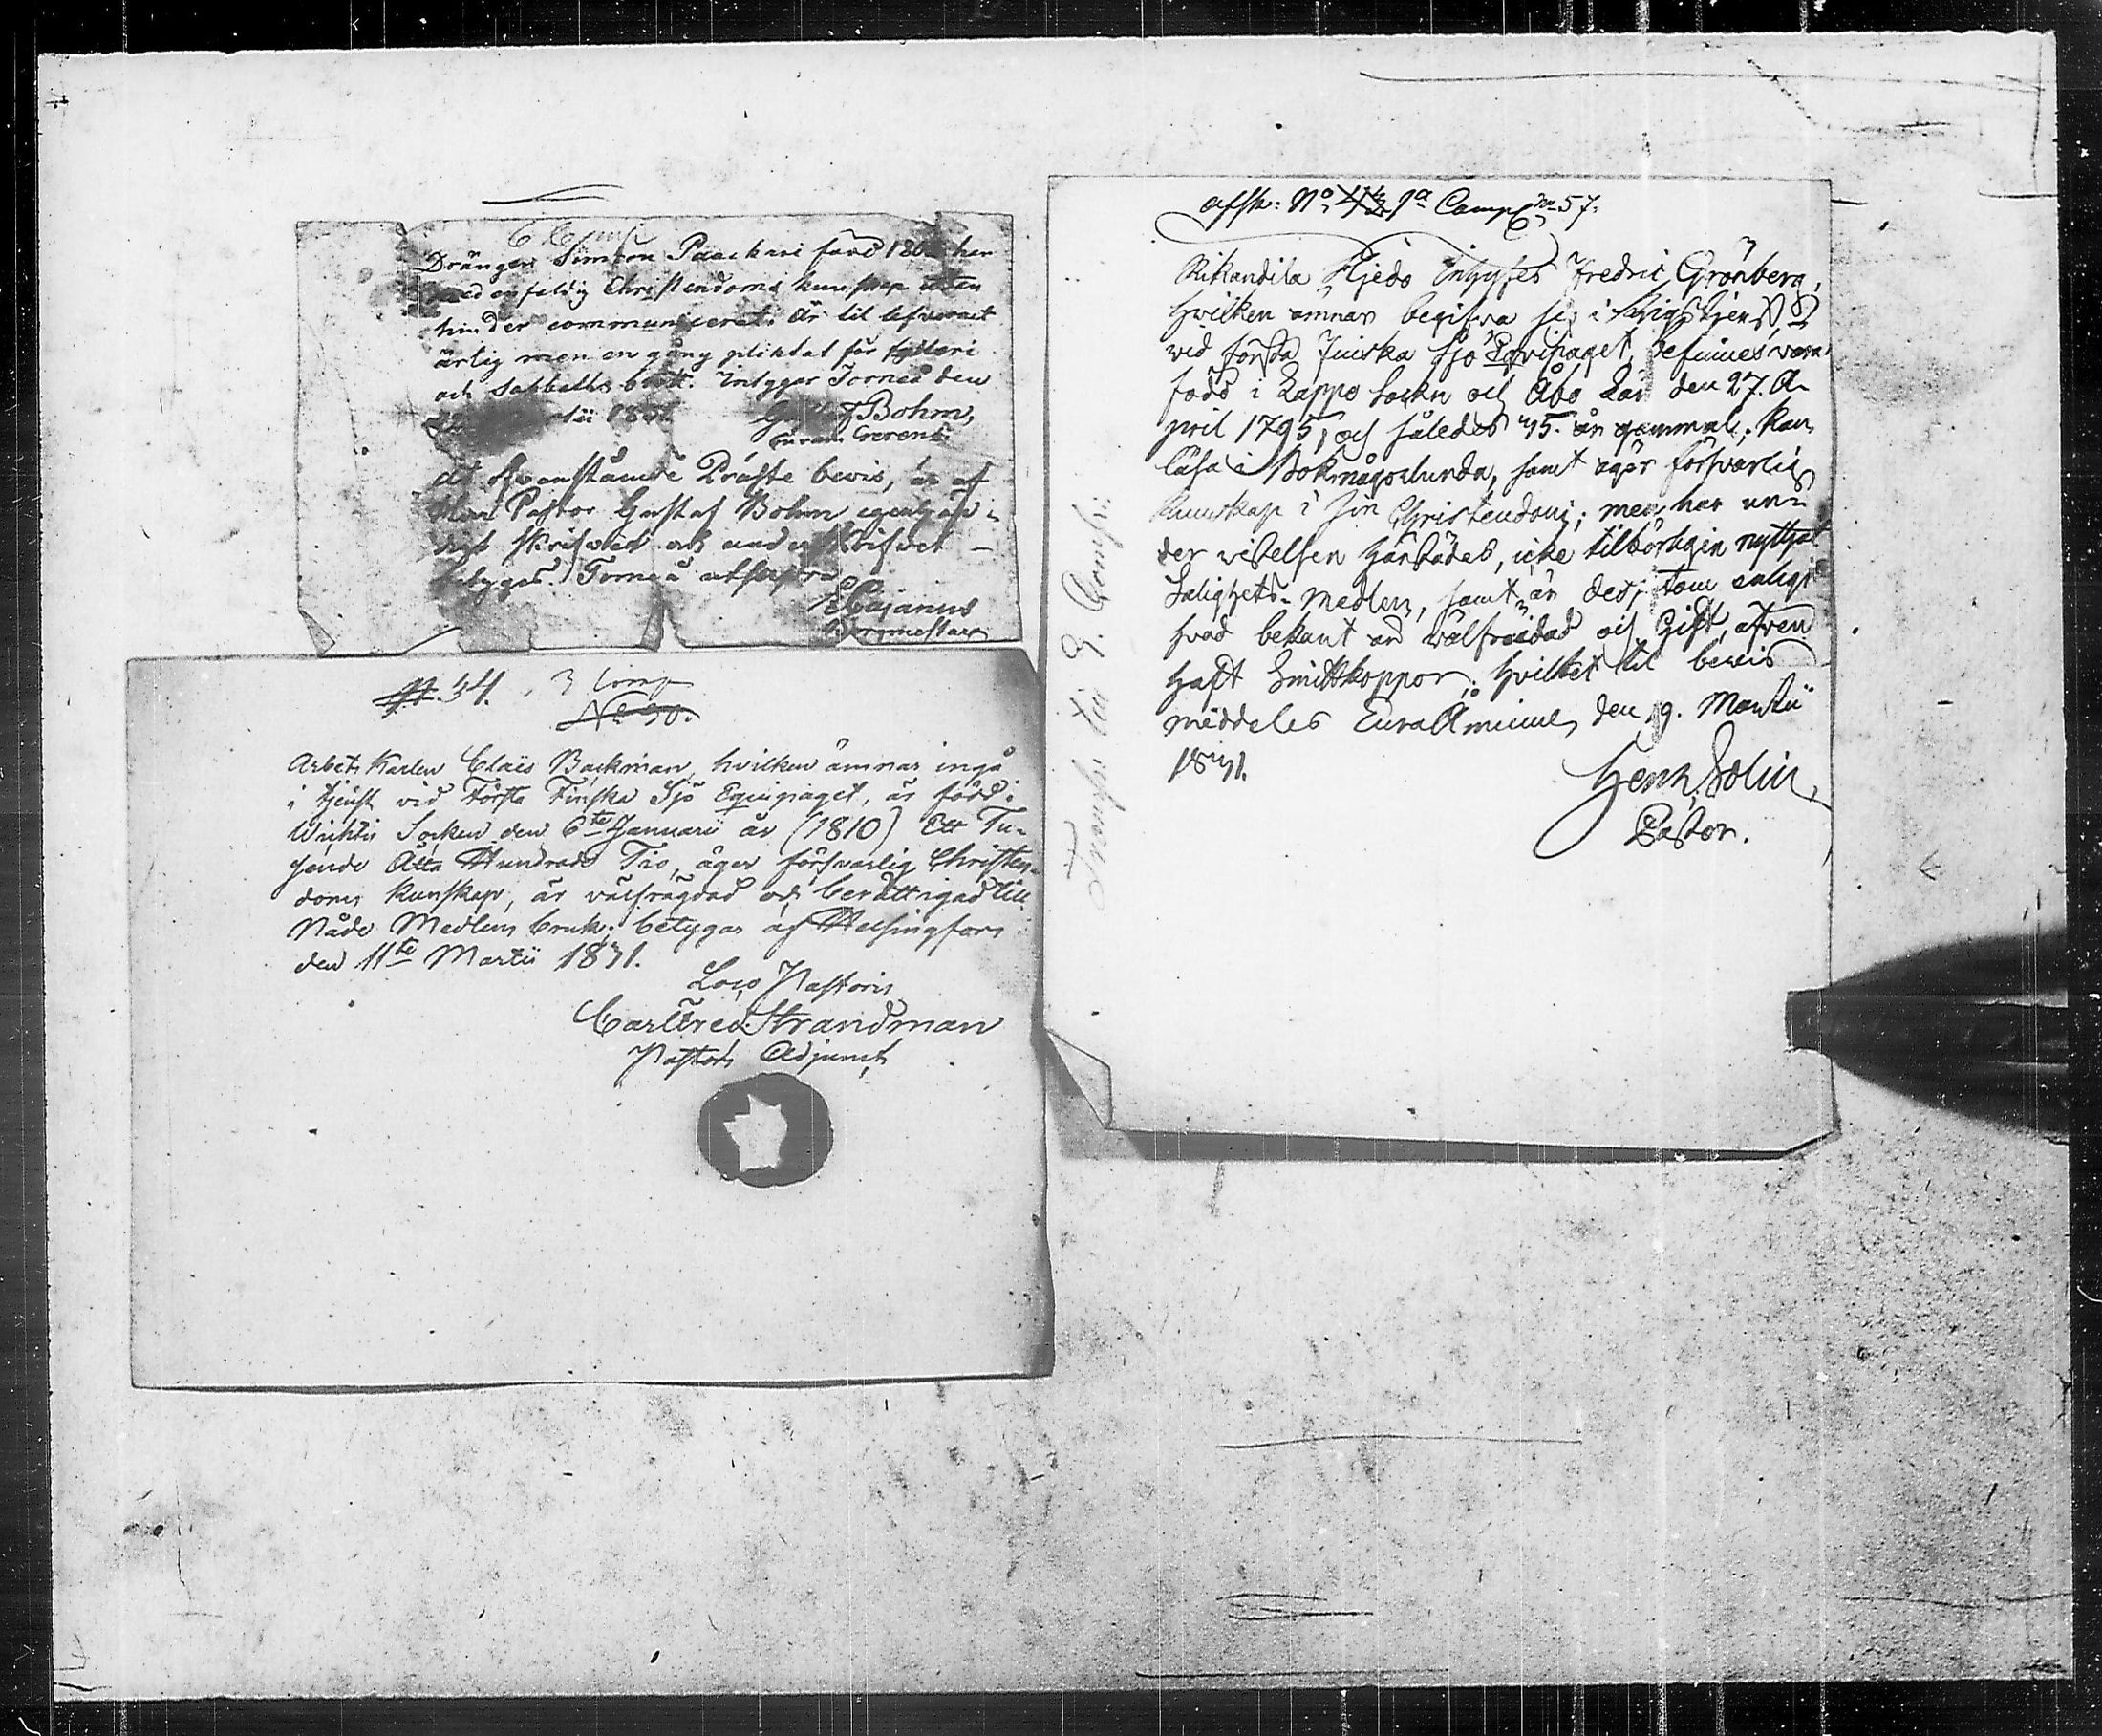 6 Comp.
Drängen Simeon Paackari född 180 har
med enfaldig Christendoms kunskap utan
hinder communicerat. Är til lefvernet
ärlig men en gång pliktat för fylleri
och Sabbaths brott. Intygar Torneå den
1831. Gustaf Bohm,
curam Gerens.
At ofvanstående Präste bevis, är af
Herr Pastor Gustaf Bohm egenhän-
digt skrifvit och underskrifvet –
betygas. Torneå ut supra
Cajanus
Borgmestare
N. 34. 3 Comp
No 30.
Arbets Karlen Claës Backman, hvilken ämnar ingå
i tjenst vid Första Finska Sjö Equipaget, är född i
Wichtis Socken den 6te Januarii år (1810) Ett Tu-
sende Åtta Hundrade Tio, äger försvarlig Christen-
doms kunskap, är välfrägdad och berättigad till
Nåde Medlens bruk; betygas af Helsingfors
den 11te Martii 1831.
Loco Pastoris
Carl Fred. Strandman
Pastors Adjunct
afsk: No 1a Comp No 57.
Rikandila Hjedo Inhyses Fredric Grönberg,
hvilken ämnar begifva sig i Krigstjenst,
vid första Finska Sjö Equipaget, befinnes vara
född i Lappo Sockn och Åbo Län den 27. A-
pril 1795, och således 35. år gammal; kan
läsa i Bok någorlunda, samt äger försvarlig
kunskap i sin Christendom; men har un-
der vistelsen härstädes, icke tilbörligen nyttjat
Salighets-Medlen, samt är dess utom enligt
hvad bekant är välfrejdad och Gift, äfven
haft Smittkoppor; hvilket til bevis
meddeles Eura Åminne, den 19. Martii
1831.
Henr. Solin,
Pastor.
Transp. till 2. Comp: